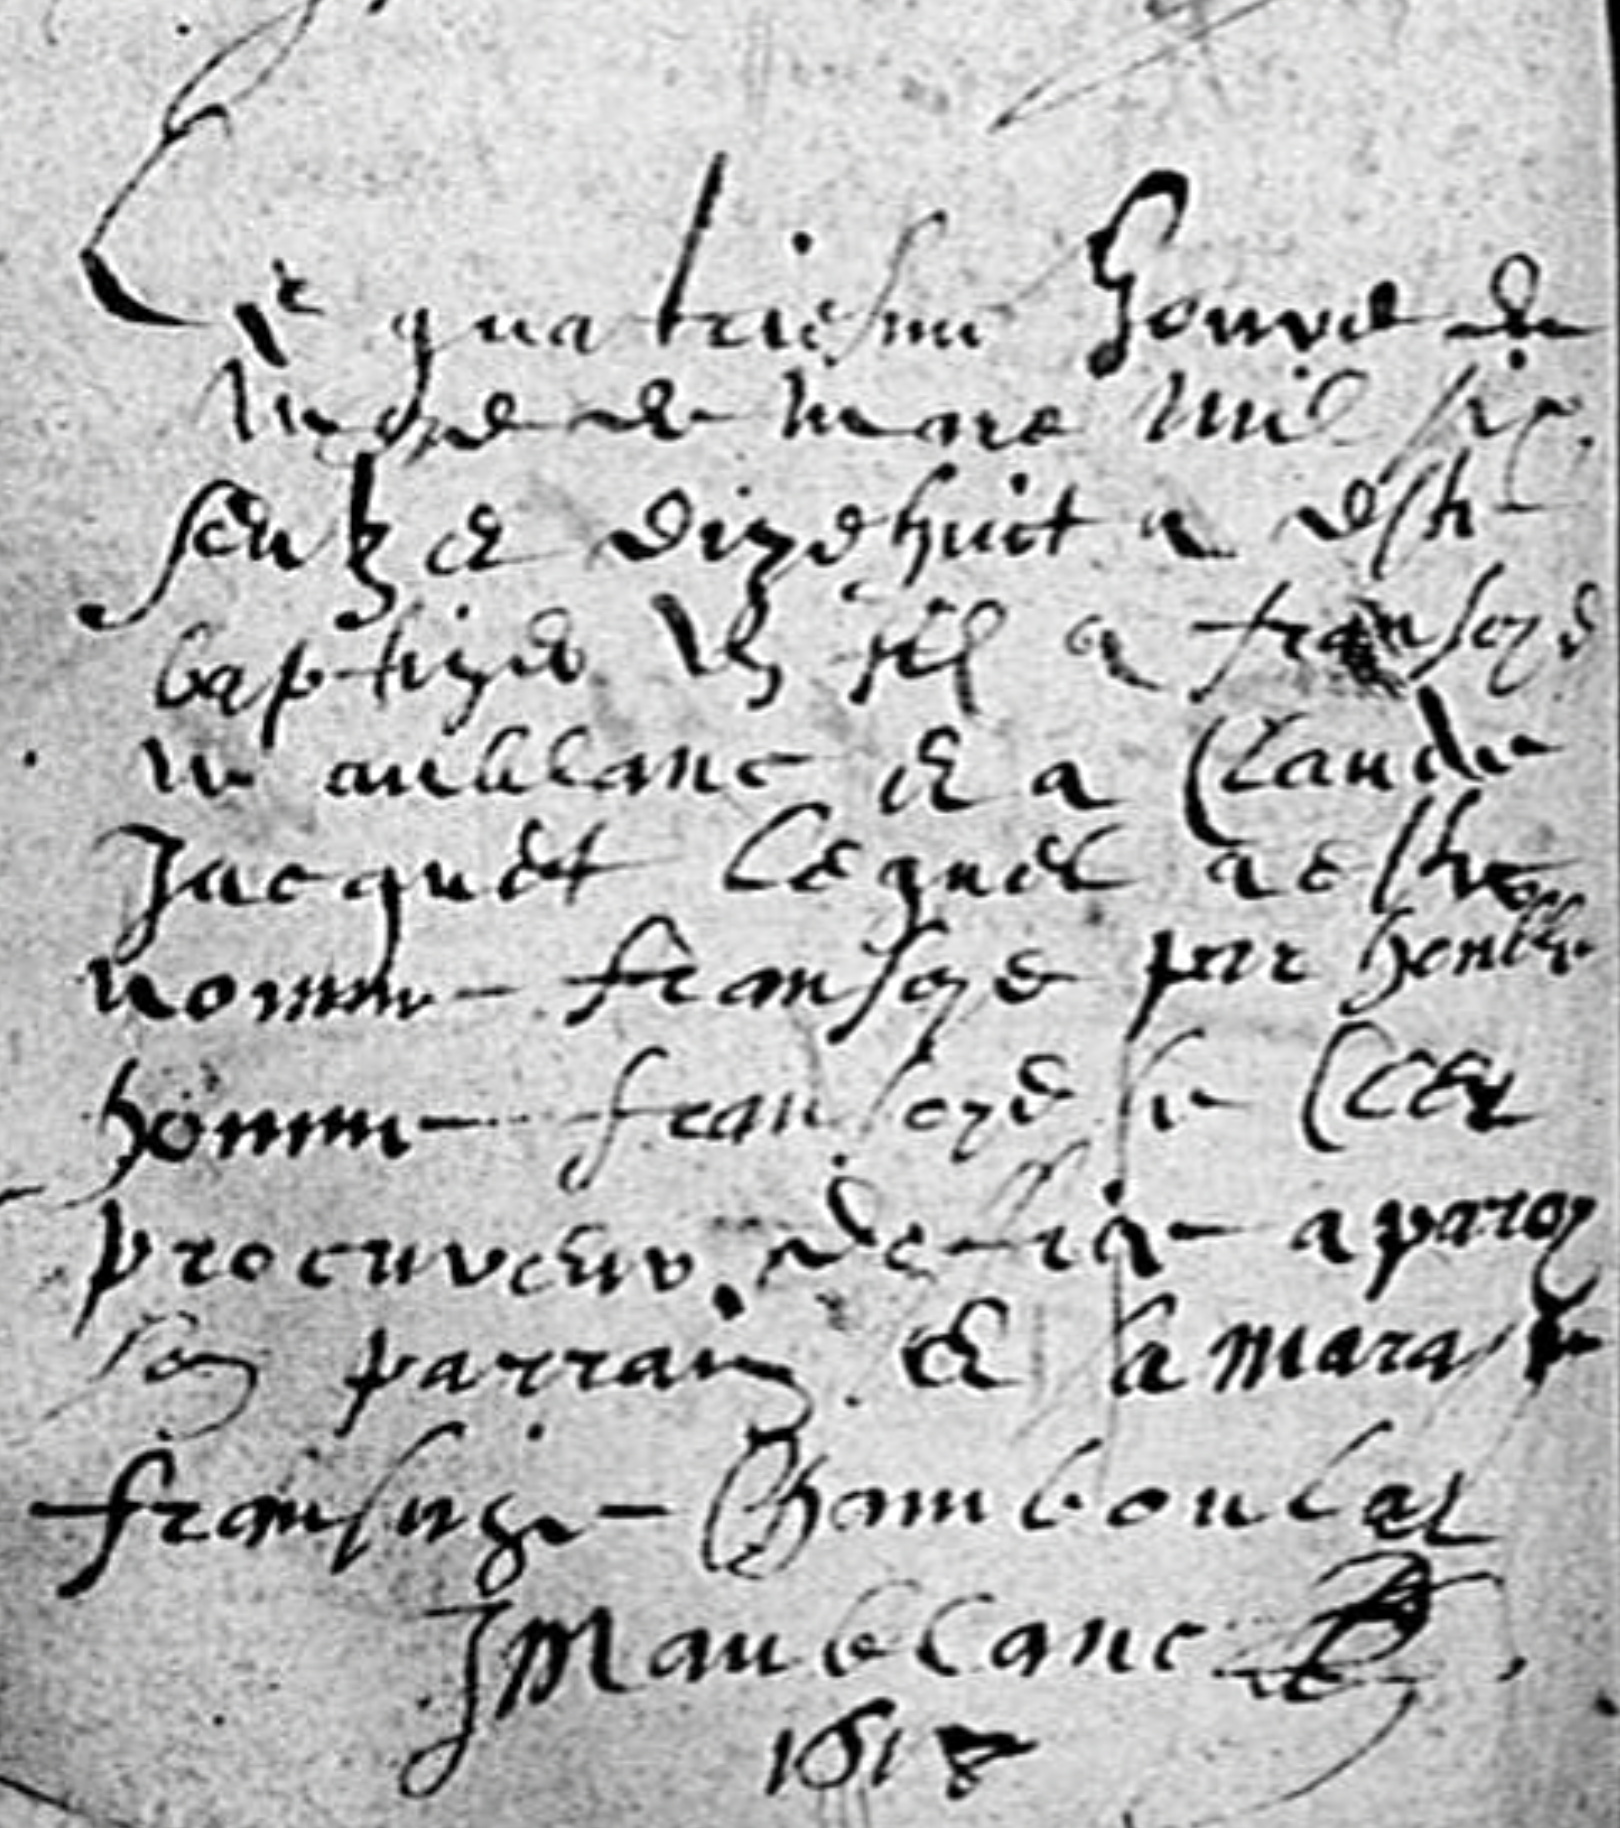 Le quatriesme Jour de
moys de mars mil six
sentz et dizehuit a esté
baptizé un filz a fransoys
maublanc et a Claude
Jacquet lequel a esté
nommé fransoys par honble
homme fransoys
procureur a paroy
son parrain et la marayne
fransoyze Chamboulas
J Maublanc
1618